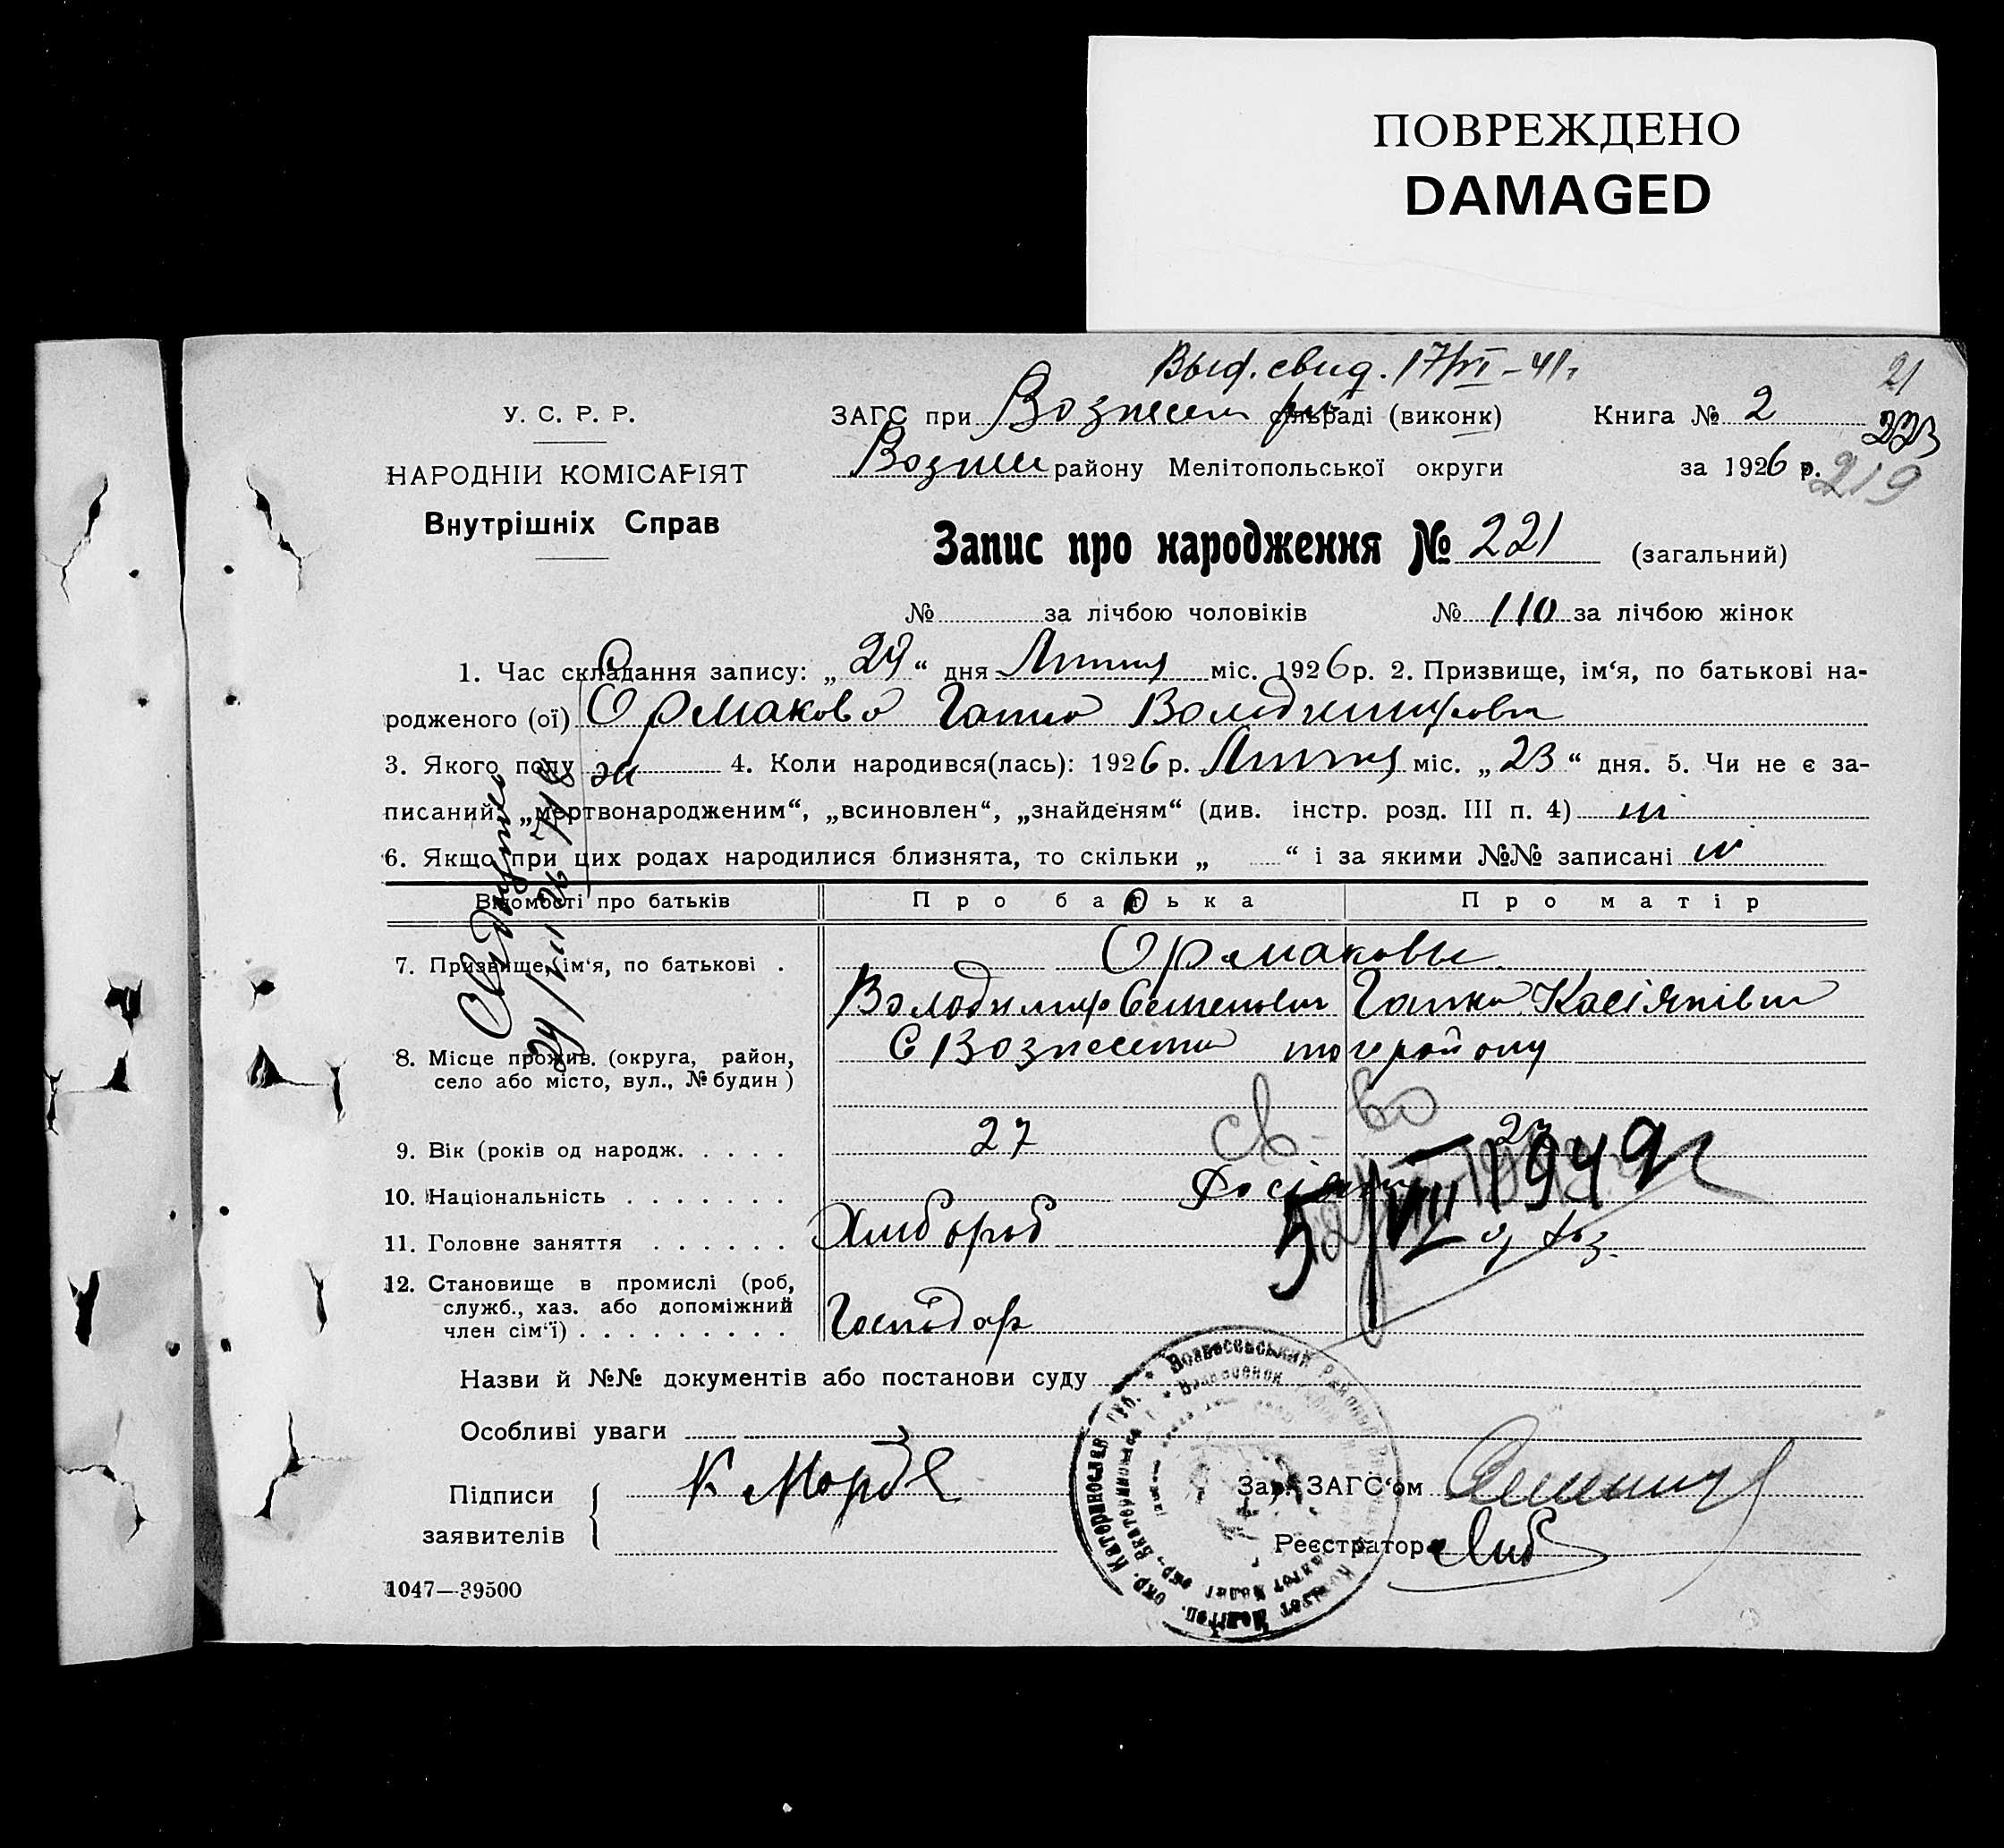 ПОВРЕЖДЕНО
DAMAGED
Выд. свид. 17/VI – 41 г
21
У. С. Р. Р.
ЗАГС при Вознесен сільраді (виконк) Книга № 2
223
НАРОДНІЙ КОМІСАРІЯТ
Внутрішніх Справ
Вознес району Мелітопольської округи за 1926 р.
219
Запис про народження № 221 (загальний)
№ за лічбою чоловіків № 110 за лічбою жінок
1. Час складання запису: „29“ дня Липня міс. 1926 р. 2. Призвище, ім‘я, по батькові на-
родженого (ої) Єрмакова Ганна Володимировна
3. Якого полу жі 4. Коли народився(лась): 1926 р. Липня міс. „23“ дня. 5. Чи не є за-
писаний: „мертвонародженим“, „всиновлен“, „знайденям“ (див. інстр. розд. III п. 4) ні
6. Якщо при цих родах народилися близнята, то скільки „ “ і за якими №№ записані ні
Відомості про батьків Про батька Про матір
7. Призвище, ім‘я, по батькові . Єрмаковы
Володимир Семенович Ганна Касіянівна
8. Місце прожив. (округа, район,
село або місто, вул., № будин )
С Вознесенка того району
св-во
9. Вік (років од народж. . . . . 27
5/VIII 1949 г
10. Національність . . . . . . .
11. Головне заняття . . . . . . Хлибороб
12. Становище в промислі (роб,
служб., хаз. або допоміжний
член сім‘ї) . . . . . . . . . Господар
Назви й №№ документів або постанови суду
Особливі уваги
Підписи
заявителів
К Морозов
Зав. ЗАГС‘ом
Реєстратор
1047—39500